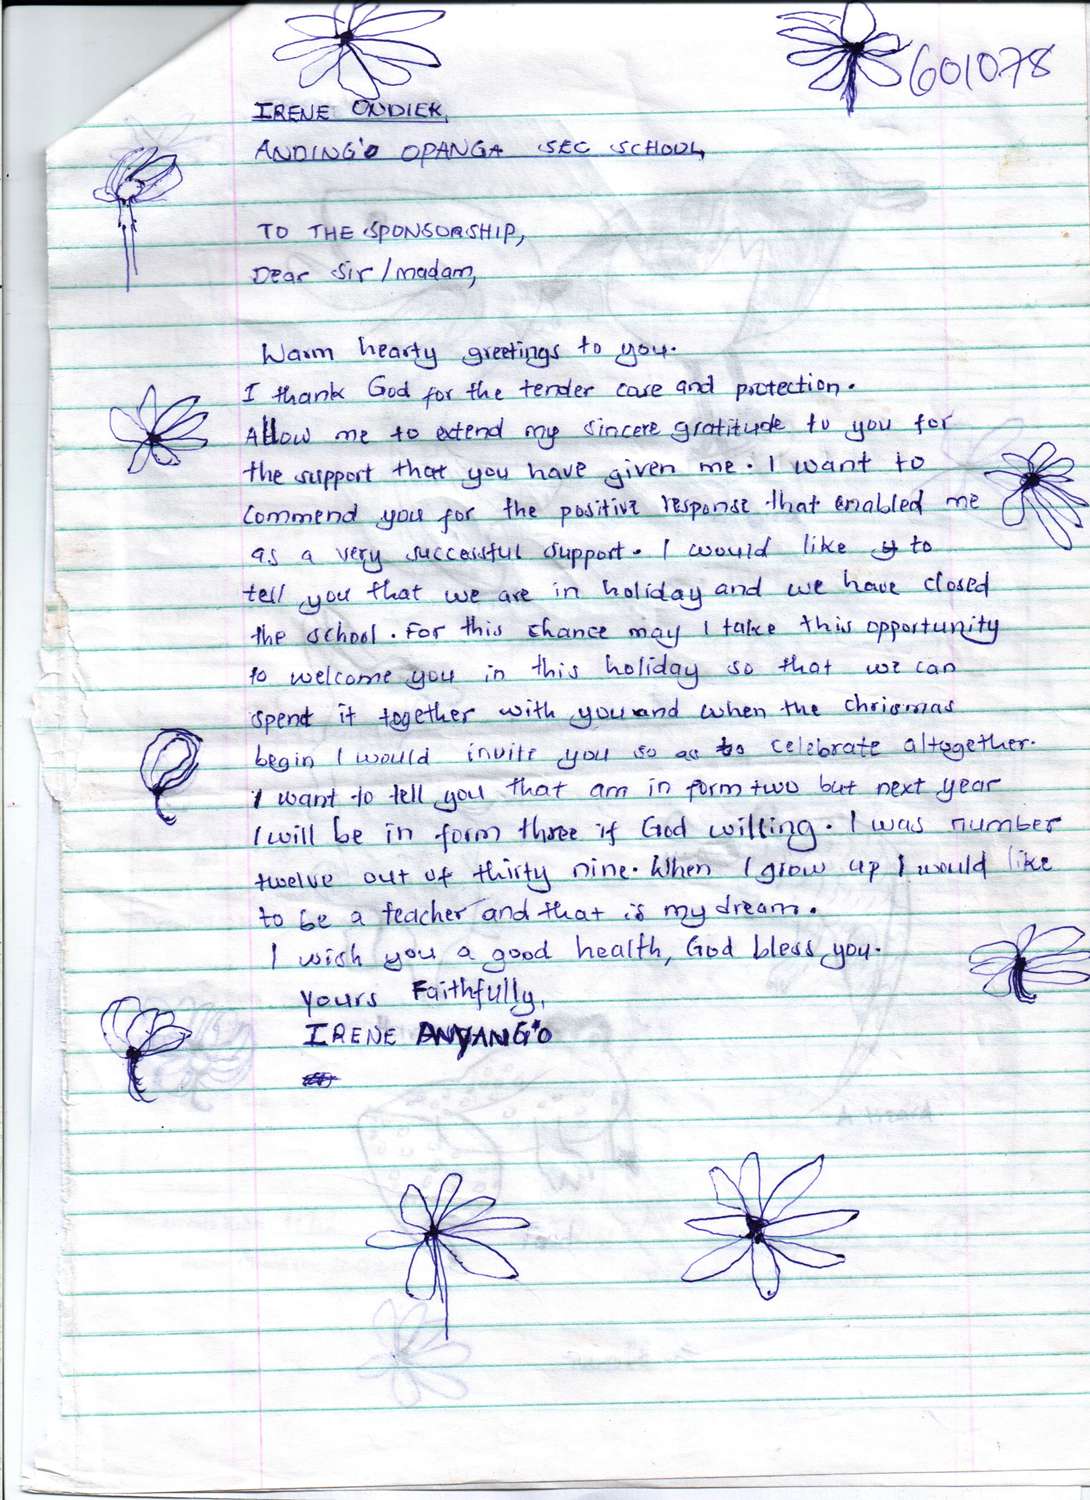 601078
IRENE ONDIEK,
ANDING'O OPANGA SEC SCHOOL,
TO THE SPONSORSHIP,
Dear Sir/madam,
Warm hearty greetings to you.
I thank God for the tender care and protection.
Allow me to extend my sincere gratitude to you for
the support that you have given me. I want to
commend you for the positive response that enabled me
as a very successful support. I would like to
tell you that we are in holiday and we have closed
the school. For this chance may I take this opportunity
to welcome you in this holiday so that we can
spend it together with you and when the chrismas
begin I would invite you so as to celebrate altogether.
I want to tell you that am in form two but next year
I will be in form three if God willing. I was number
twelve out of thirty nine. When I grow up I would like
to be a teacher and that is my dream.
I wish you a good health, God bless you.
Yours Faithfully,
IRENE ANYANG'O